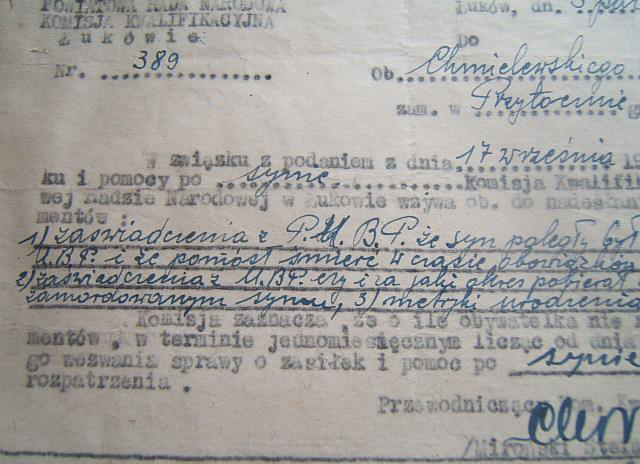 POWIATOWA RADA NARODOWA
KOMISJA KWALIFIKACYJNA
Łuków, dn. 3
Łukowie
Do
Nr. ...389...............
Ob. Chmielewskiego
zam. w Przytocznie
W związku z podaniem z dnia 17 września 19
ku i pomocy po ...synie..............Komisja Kwalifik
wej Radzie Narodowej w Łukowie wzywa ob. do nadesłan
mentów :
1) zaświadczenia z P.U.B.P. że syn poległy był
U.B.P. i że poniósł śmierć w czasie obowiązków
2) zaświadczenia z U.B.P. czy i za jaki okres pobierał
zamordowanym synu, 3) metryki urodzenia
Komisja zaznacza, że o ile obywatelka nie
mentów, w terminie jednomiesięcznym licząc od dnia
go wezwania sprawy o zasiłek i pomoc po synie
rozpatrzenia .
Przewodniczący Kom. Kw
/Miroński Stef